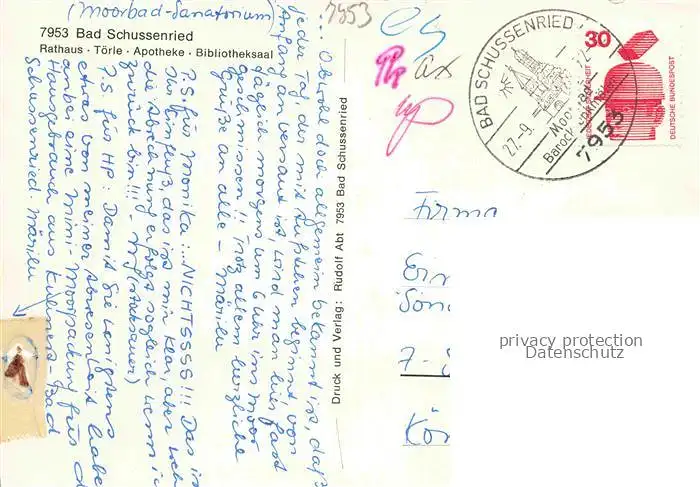 (Moorbad-Sanatorium)
7953
7953 Bad Schussenried
Rathaus · Törle · Apotheke · Bibliotheksaal
... Obwohl doch allgemein bekannt ist, daß
jeder Tag, der mit Aufstehen beginnt von
Anfang an versaut ist, wird man hier fast
täglich morgens um 6 Uhr ins Moor
geschmissen!! Trotz allem herzliche
Grüße an alle – Marilu
P.S. für Monika: ...NICHTSSSS!!! Das ist
zur Einfluß, das ist mir klar, aber
die Abrechnung erfolgt sogleich wenn ich
zurück bin!!!
P.S. für HP: Damit Sie wenigstens
etwas von meiner Abwesenheit haben
anbei eine Mini-Moorpackung für d
Hausgebrauch aus
Schussenried. Marilu
Druck und Verlag: Rudolf Abt 7953 Bad Schussenried
BAD SCHUSSENRIED 1
27.-9.
Moor-Bad
7953
30
DEUTSCHE BUNDESPOST
Firma
7-
privacy protection
Datenschutz